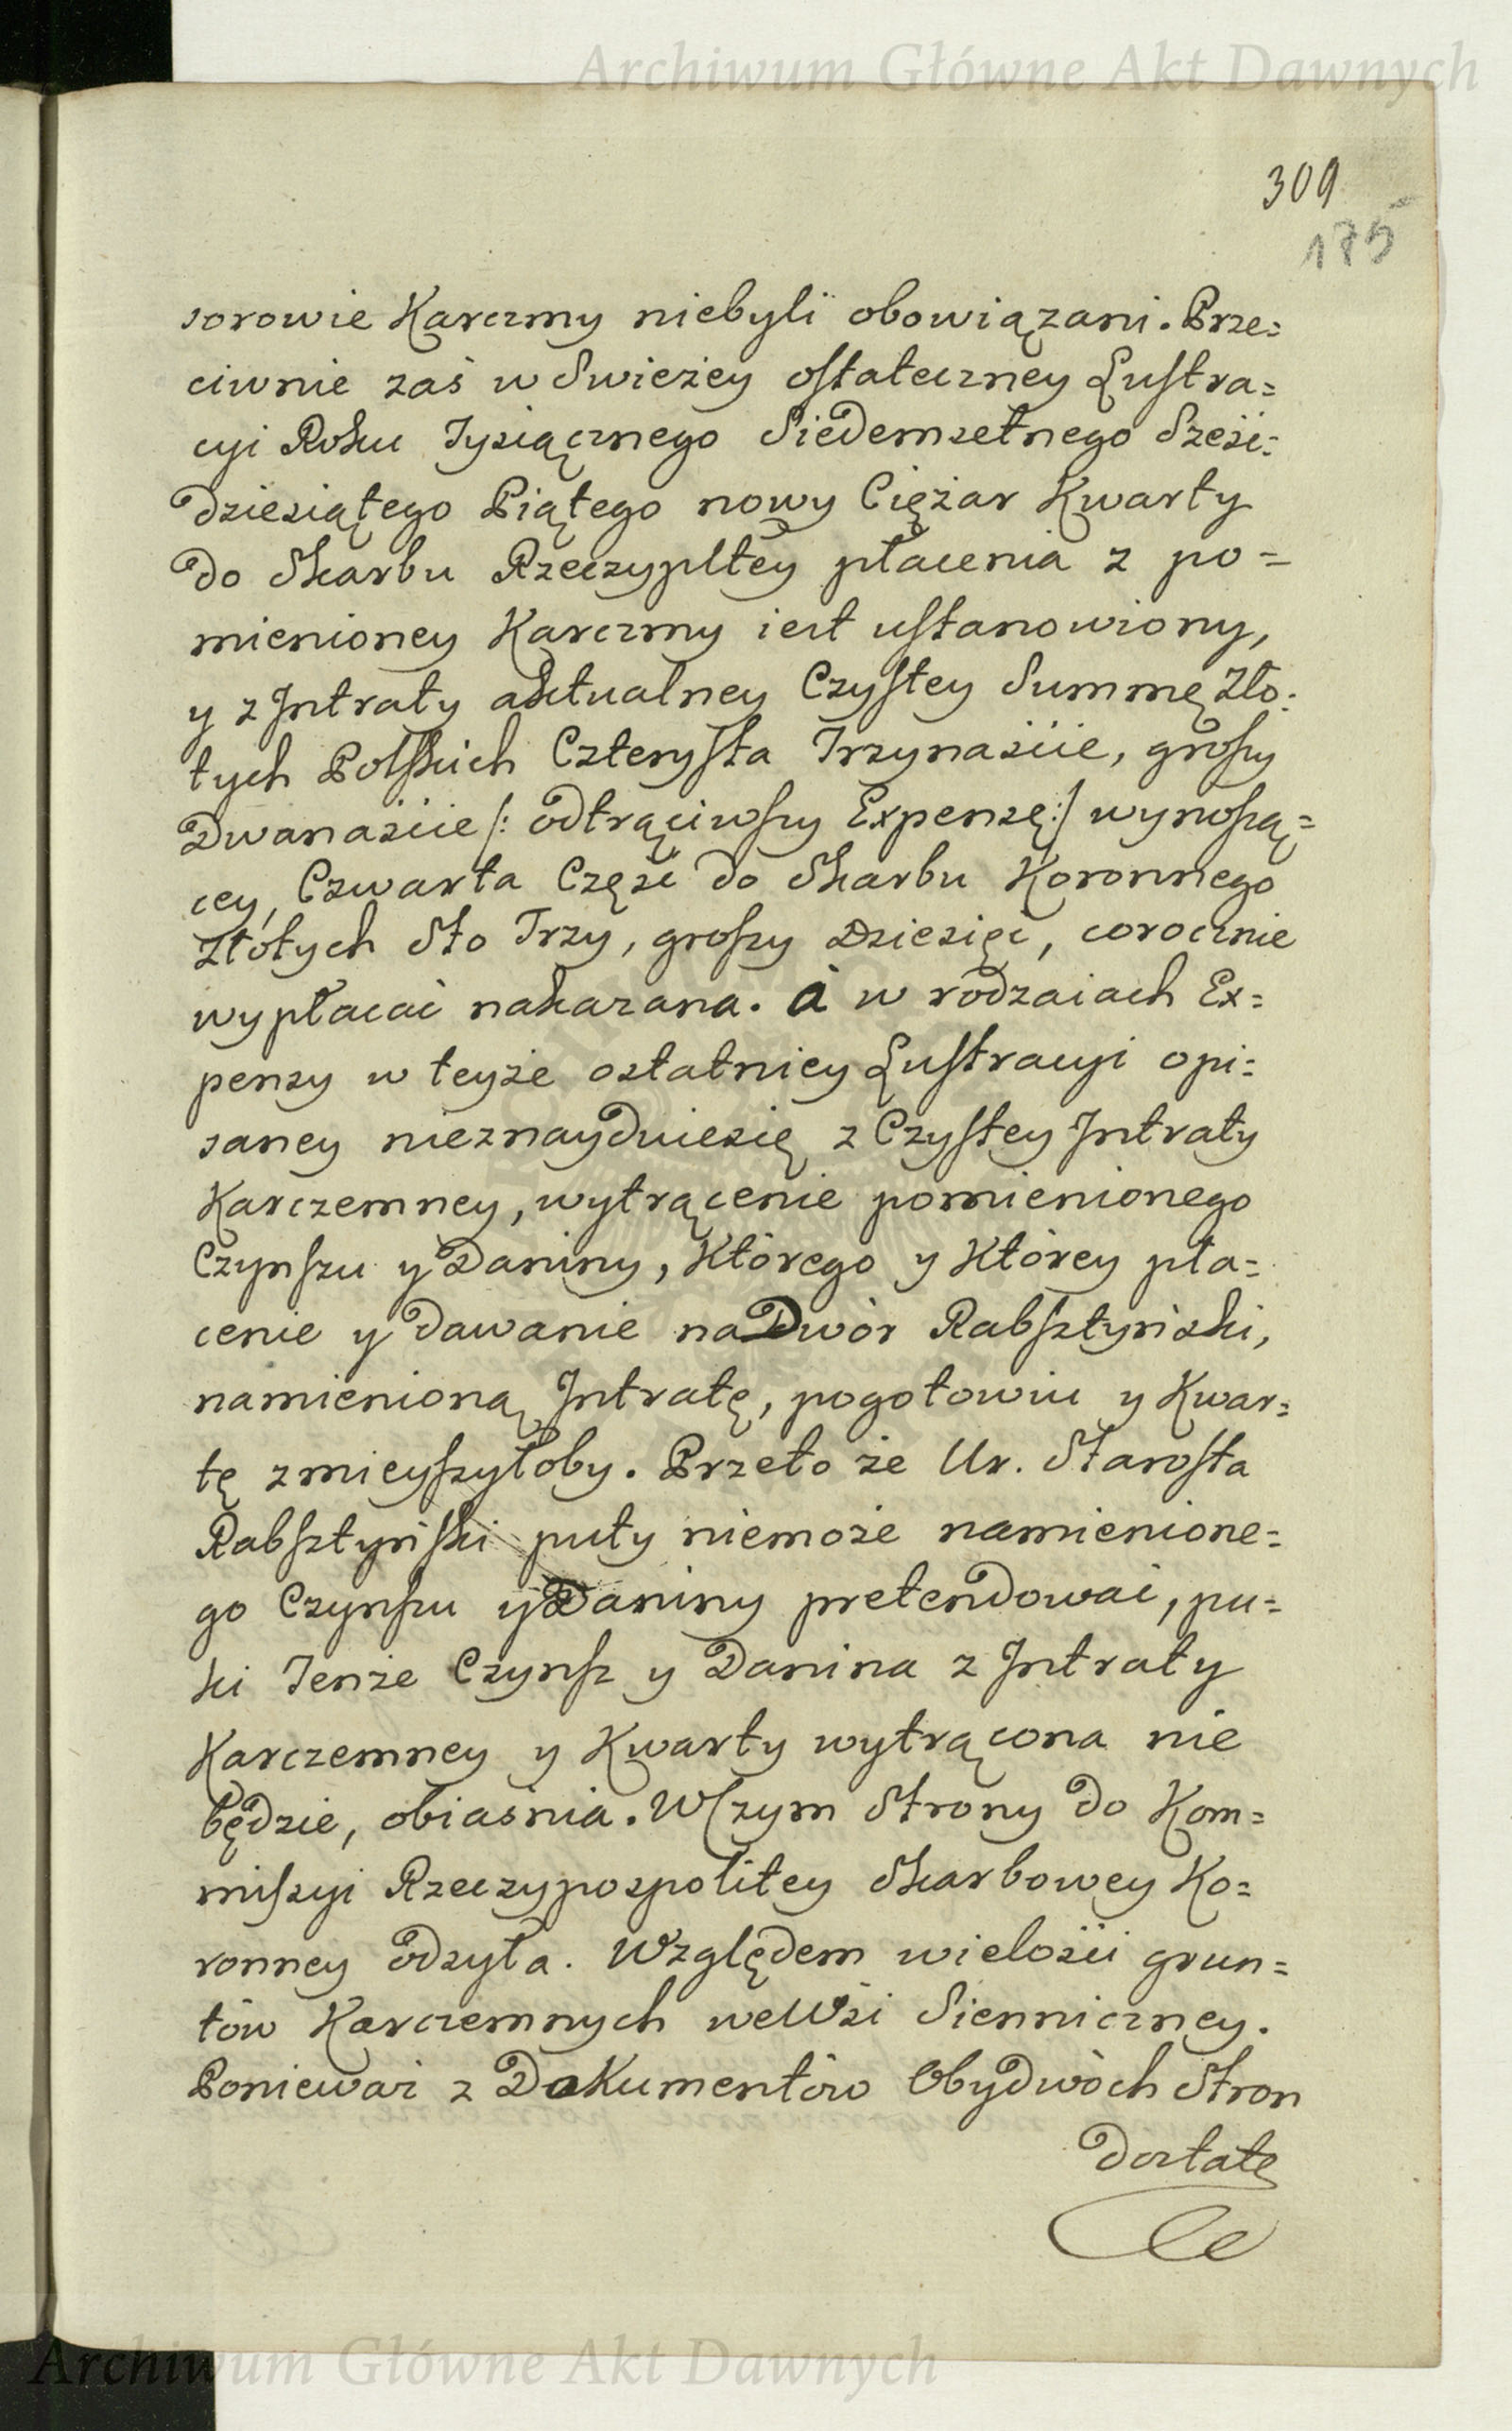 Archiwum Główne Akt Dawnych
309
175
sorowie Karczmy niebyli obowiązani. Prze=
ciwnie zaś w Swieżey ostateczney Lustra=
cyi Roku Tysiącznego Siedemsetnego Sześć=
dziesiątego Piątego nowy Ciężar Kwarty
do Skarbu Rzeczypltey płacenia z po=
mienioney Karczmy iest ustanowiony,
y z Jntraty aktualney Czystey Summę Zło=
tych Polskich Czterysta Trzynaście, groszy
Dwanaście /: odtrąciwszy Expensę :/ wynoszą=
cey, Czwarta Część do Skarbu Koronnego
Złotych Sto Trzy, groszy Dziesięć, corocznie
wypłacać nakazana. A w rodzaiach Ex=
pensy w teyże ostatniey Lustracyi opi=
saney nieznayduiesię z Czystey Jntraty
Karczemney, wytrącenie pomienionego
Czynszu y Daniny, Którego y Którey pła=
cenie y dawanie na Dwór Rabsztyński,
namienioną Jntratę, pogotowiu y Kwar=
tę zmieyszyłoby. Przeto że Ur. Starosta
Rabsztyński puty niemoże namienione=
go Czynszu y Daniny pretendować, pu=
ki Tenże Czynsz y Danina z Jntraty
Karczemney y Kwarty wytrącona nie
będzie, obiaśnia. W czym Strony do Kom=
missyi Rzeczypospolitey Skarbowey Ko=
ronney odsyła. Względem wielości grun=
tów Karczemnych we Wsi Sienniczney.
Ponieważ z Dokumentów Obydwóch Stron
dostate
Archiwum Główne Akt Dawnych